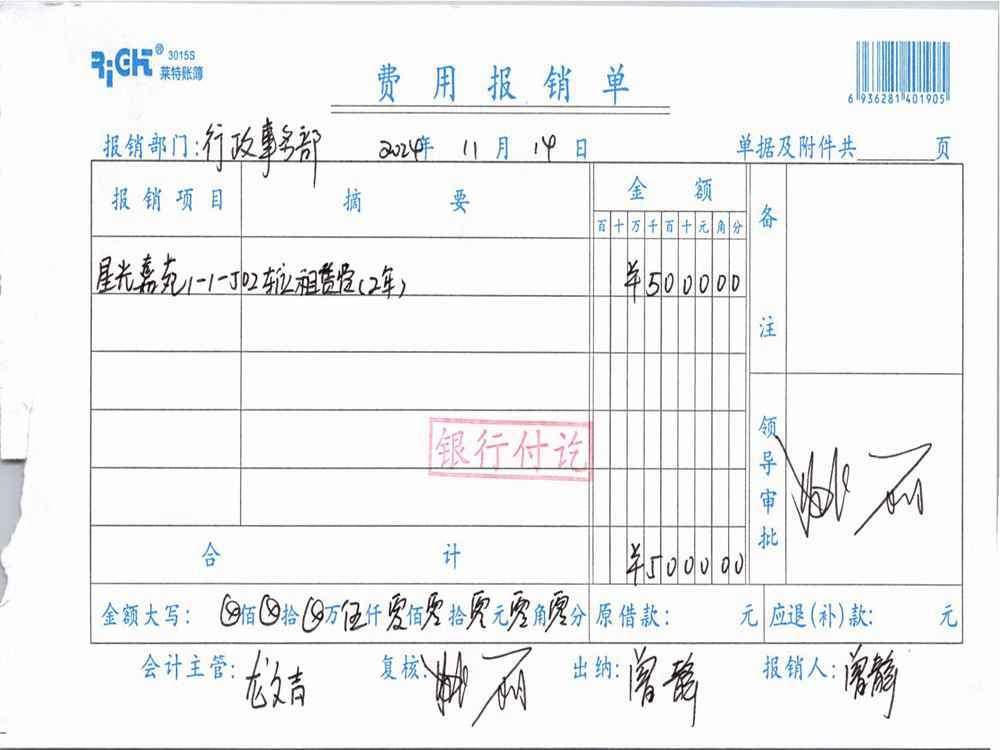 RiGHT® 3015S
莱特账簿
费用报销单
6 936281 401905
报销部门:行政事务部 2024年 11月 14日 单据及附件共 页
报销项目 摘要 金额 备注
百十万千百十元角分
星光嘉苑1-1-502车位租赁费(2年) ¥500000
银行付讫
领导审批
合计 ¥500000
金额大写: ⊗佰⊗拾⊗万伍仟零佰零拾零元零角零分 原借款: 元 应退(补)款: 元
会计主管: 龙文吉 复核: 出纳: 曾静 报销人: 曾静